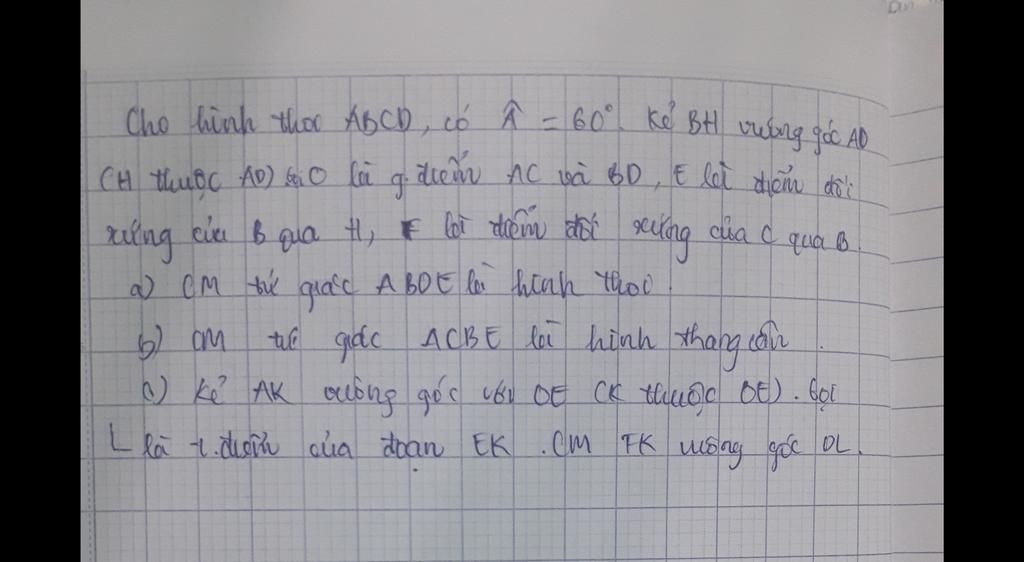 Cho hình thoi ABCD, có Â = 60°. Kẻ BH vuông góc AD
(H thuộc AD) gọi O là g.điểm AC và BD, E là điểm đối
xứng của B qua H, F là điểm đối xứng của C qua B.
a) CM tứ giác ABDE là hình thoi.
b) CM tứ giác ACBE là hình thang cân.
c) Kẻ AK vuông góc với DE (K thuộc DE). Gọi
L là t.điểm của đoạn EK. CM FK vuông góc OL.